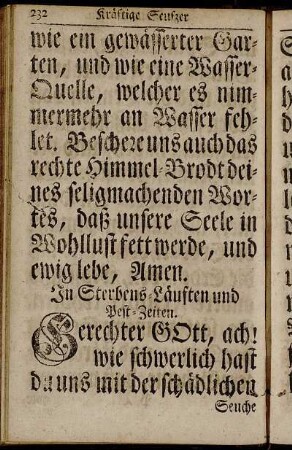 232 Kräftige Seufzer
wie ein gewässerter Gar-
ten, und wie eine Wasser-
Quelle, welcher es nim-
mermehr an Wasser feh-
let. Beschere uns auch das
rechte Himmel-Brodt dei-
nes seligmachenden Wor-
tes, daß unsere Seele in
Wohllust fett werde, und
ewig lebe, Amen.
In Sterbens-Läufften und
Pest-Zeiten.
Gerechter GOtt, ach!
wie schwerlich hast
du uns mit der schädlichen
Seuche